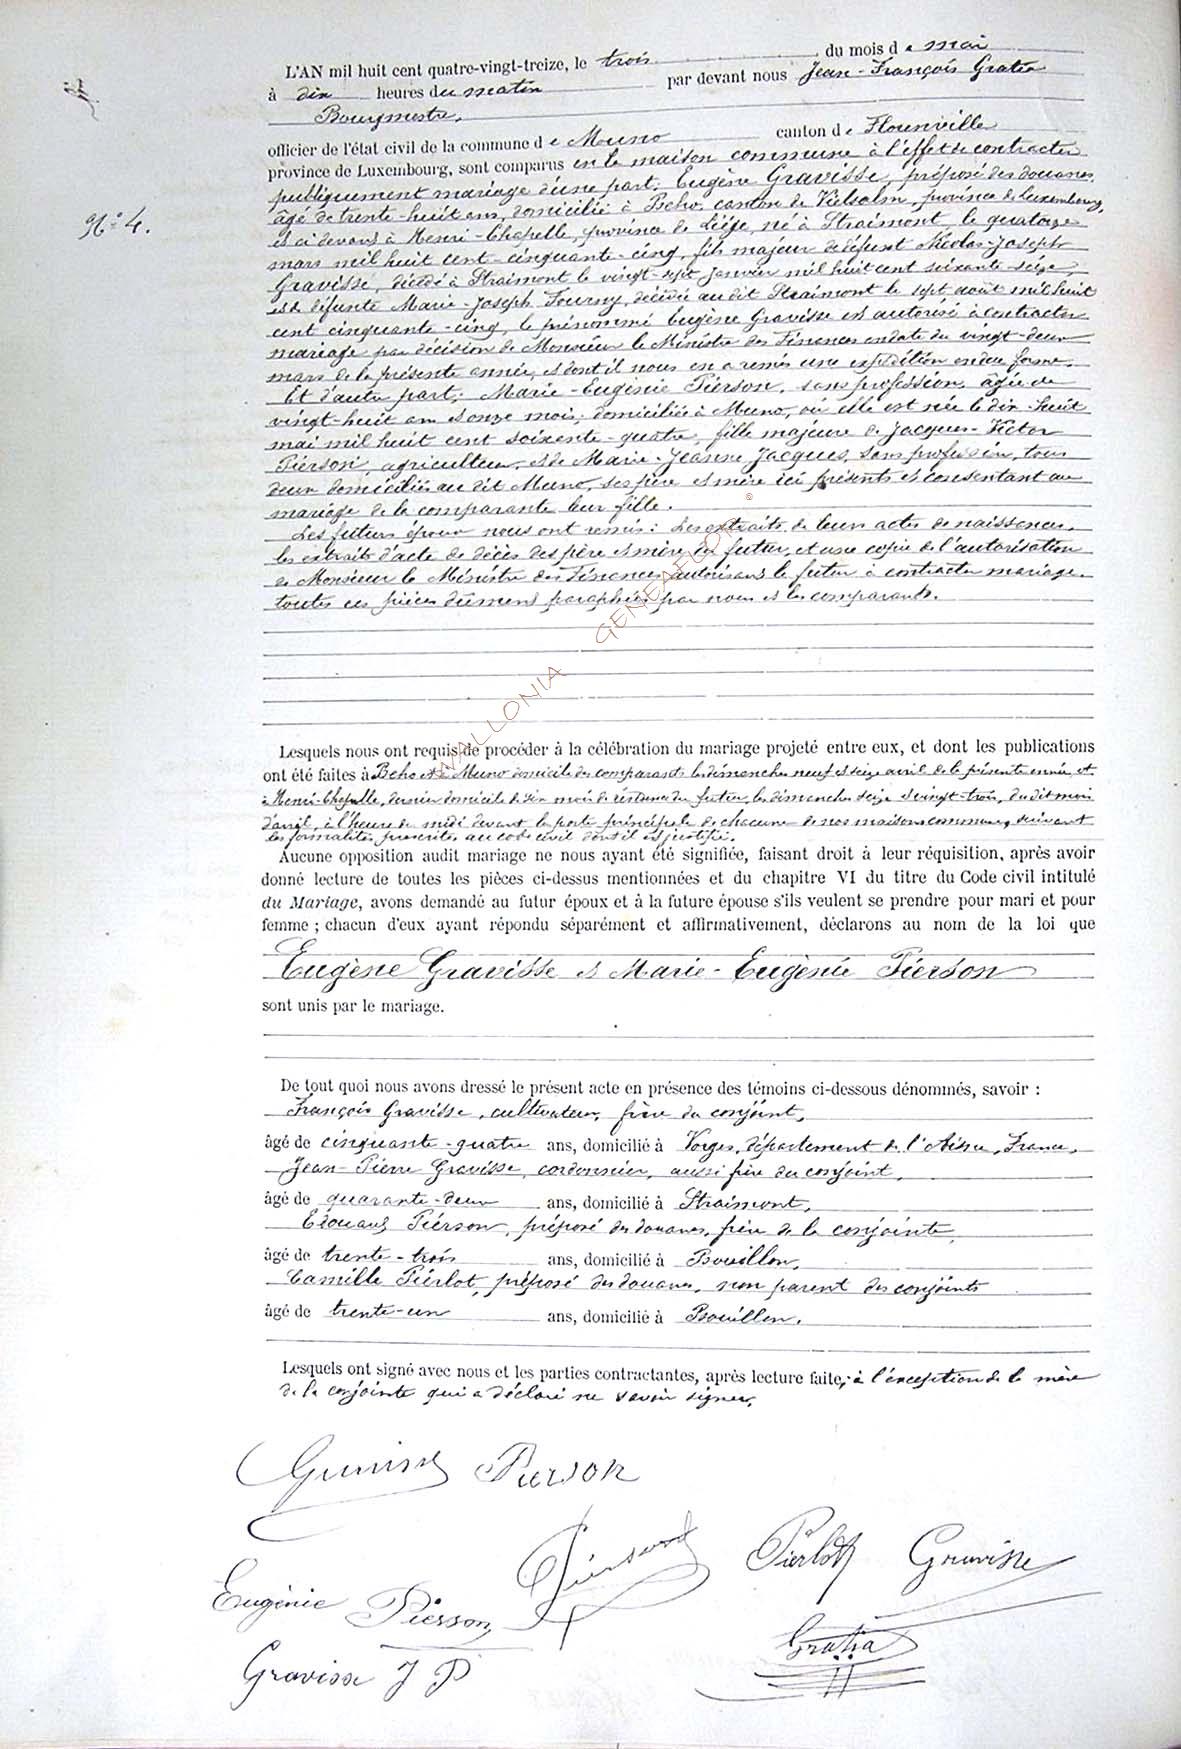 L'AN mil huit cent quatre-vingt-treize, le trois du mois de mai
à dix heures du matin par devant nous Jean-François Gratia
Bourgmestre,
officier de l'état civil de la commune de Muno canton de Florenville
province de Luxembourg, sont comparus en la maison commune à l'effet de contracter
publiquement mariage d'une part, Eugène Gravisse, préposé des douanes,
N° 4.
âgé de trente-huit ans, domicilié à Beho, canton de Vielsalm, province de Luxembourg,
et ci-devant à Henri-Chapelle, province de Liége, né à Straimont, le quatorze
mars mil huit cent cinquante-cinq, fils majeur de défunt Nicolas-Joseph
Gravisse, décédé à Straimont le vingt-sept janvier mil huit cent soixante-seize,
et de défunte Marie-Joseph Fourny, décédée au dit Straimont le sept août mil huit
cent cinquante-cinq, le prénommé Eugène Gravisse est autorisé à contracter
mariage par décision de Monsieur le Ministre des Finances en date du vingt-deux
mars de la présente année, et dont il nous en a remis une expédition en due forme.
Et d'autre part, Marie-Eugénie Pierson, sans profession, âgée de
vingt-huit ans et onze mois, domiciliée à Muno, où elle est née le dix-huit
mai mil huit cent soixante-quatre, fille majeure de Jacques-Victor
Pierson, agriculteur, et de Marie-Jeanne Jacques, sans profession, tous
deux domiciliés au dit Muno, ses père et mère ici présents et consentant au
mariage de la comparante leur fille.
Les futurs époux nous ont remis : Les extraits de leurs actes de naissances,
les extraits d'acte de décès des père et mère du futur, et une copie de l'autorisation
de Monsieur le Ministre des Finances autorisant le futur à contracter mariage.
toutes ces pièces dûment paraphées par nous et les comparants.
WALLONIA GENEAFLOR ©
Lesquels nous ont requis de procéder à la célébration du mariage projeté entre eux, et dont les publications
ont été faites à Beho et à Muno domicile des comparants les dimanches neuf et seize avril de la présente année, et
à Henri-Chapelle, dernier domicile de six mois de résidence du futur, les dimanches seize et vingt-trois, du dit mois
d'avril, à l'heure de midi devant la porte principale de chacune de nos maisons communes, suivant
les formalités prescrites au code civil dont il est justifié.
Aucune opposition audit mariage ne nous ayant été signifiée, faisant droit à leur réquisition, après avoir
donné lecture de toutes les pièces ci-dessus mentionnées et du chapitre VI du titre du Code civil intitulé
du Mariage, avons demandé au futur époux et à la future épouse s'ils veulent se prendre pour mari et pour
femme ; chacun d'eux ayant répondu séparément et affirmativement, déclarons au nom de la loi que
Eugène Gravisse et Marie-Eugénie Pierson
sont unis par le mariage.
De tout quoi nous avons dressé le présent acte en présence des témoins ci-dessous dénommés, savoir :
François Gravisse, cultivateur, frère du conjoint,
âgé de cinquante-quatre ans, domicilié à Vorges, département de l'Aisne, France,
Jean-Pierre Gravisse, cordonnier, aussi frère du conjoint,
âgé de quarante-deux ans, domicilié à Straimont,
Edouard Pierson, préposé des douanes, frère de la conjointe,
âgé de trente-trois ans, domicilié à Bouillon,
Camille Pierlot, préposé des douanes, non parent des conjoints
âgé de trente-un ans, domicilié à Bouillon.
Lesquels ont signé avec nous et les parties contractantes, après lecture faite, à l'exception de la mère
de la conjointe qui a déclaré ne savoir signer,
Gravisse Pierson
Pierson Pierlot Gravisse
Eugénie Pierson
Gratia
Gravisse J P